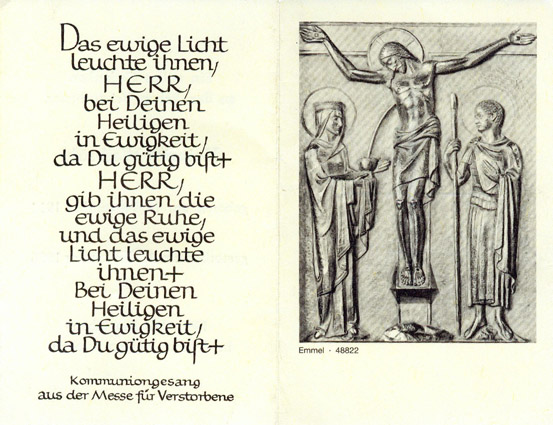 Das ewige Licht
leuchte ihnen,
HERR,
bei Deinen
Heiligen
in Ewigkeit,
da Du gütig bist+
HERR,
gib ihnen die
ewige Ruhe,
und das ewige
Licht leuchte
ihnen+
Bei Deinen
Heiligen
in Ewigkeit,
da Du gütig bist+
Kommuniongesang
aus der Messe für Verstorbene
Emmel · 48822